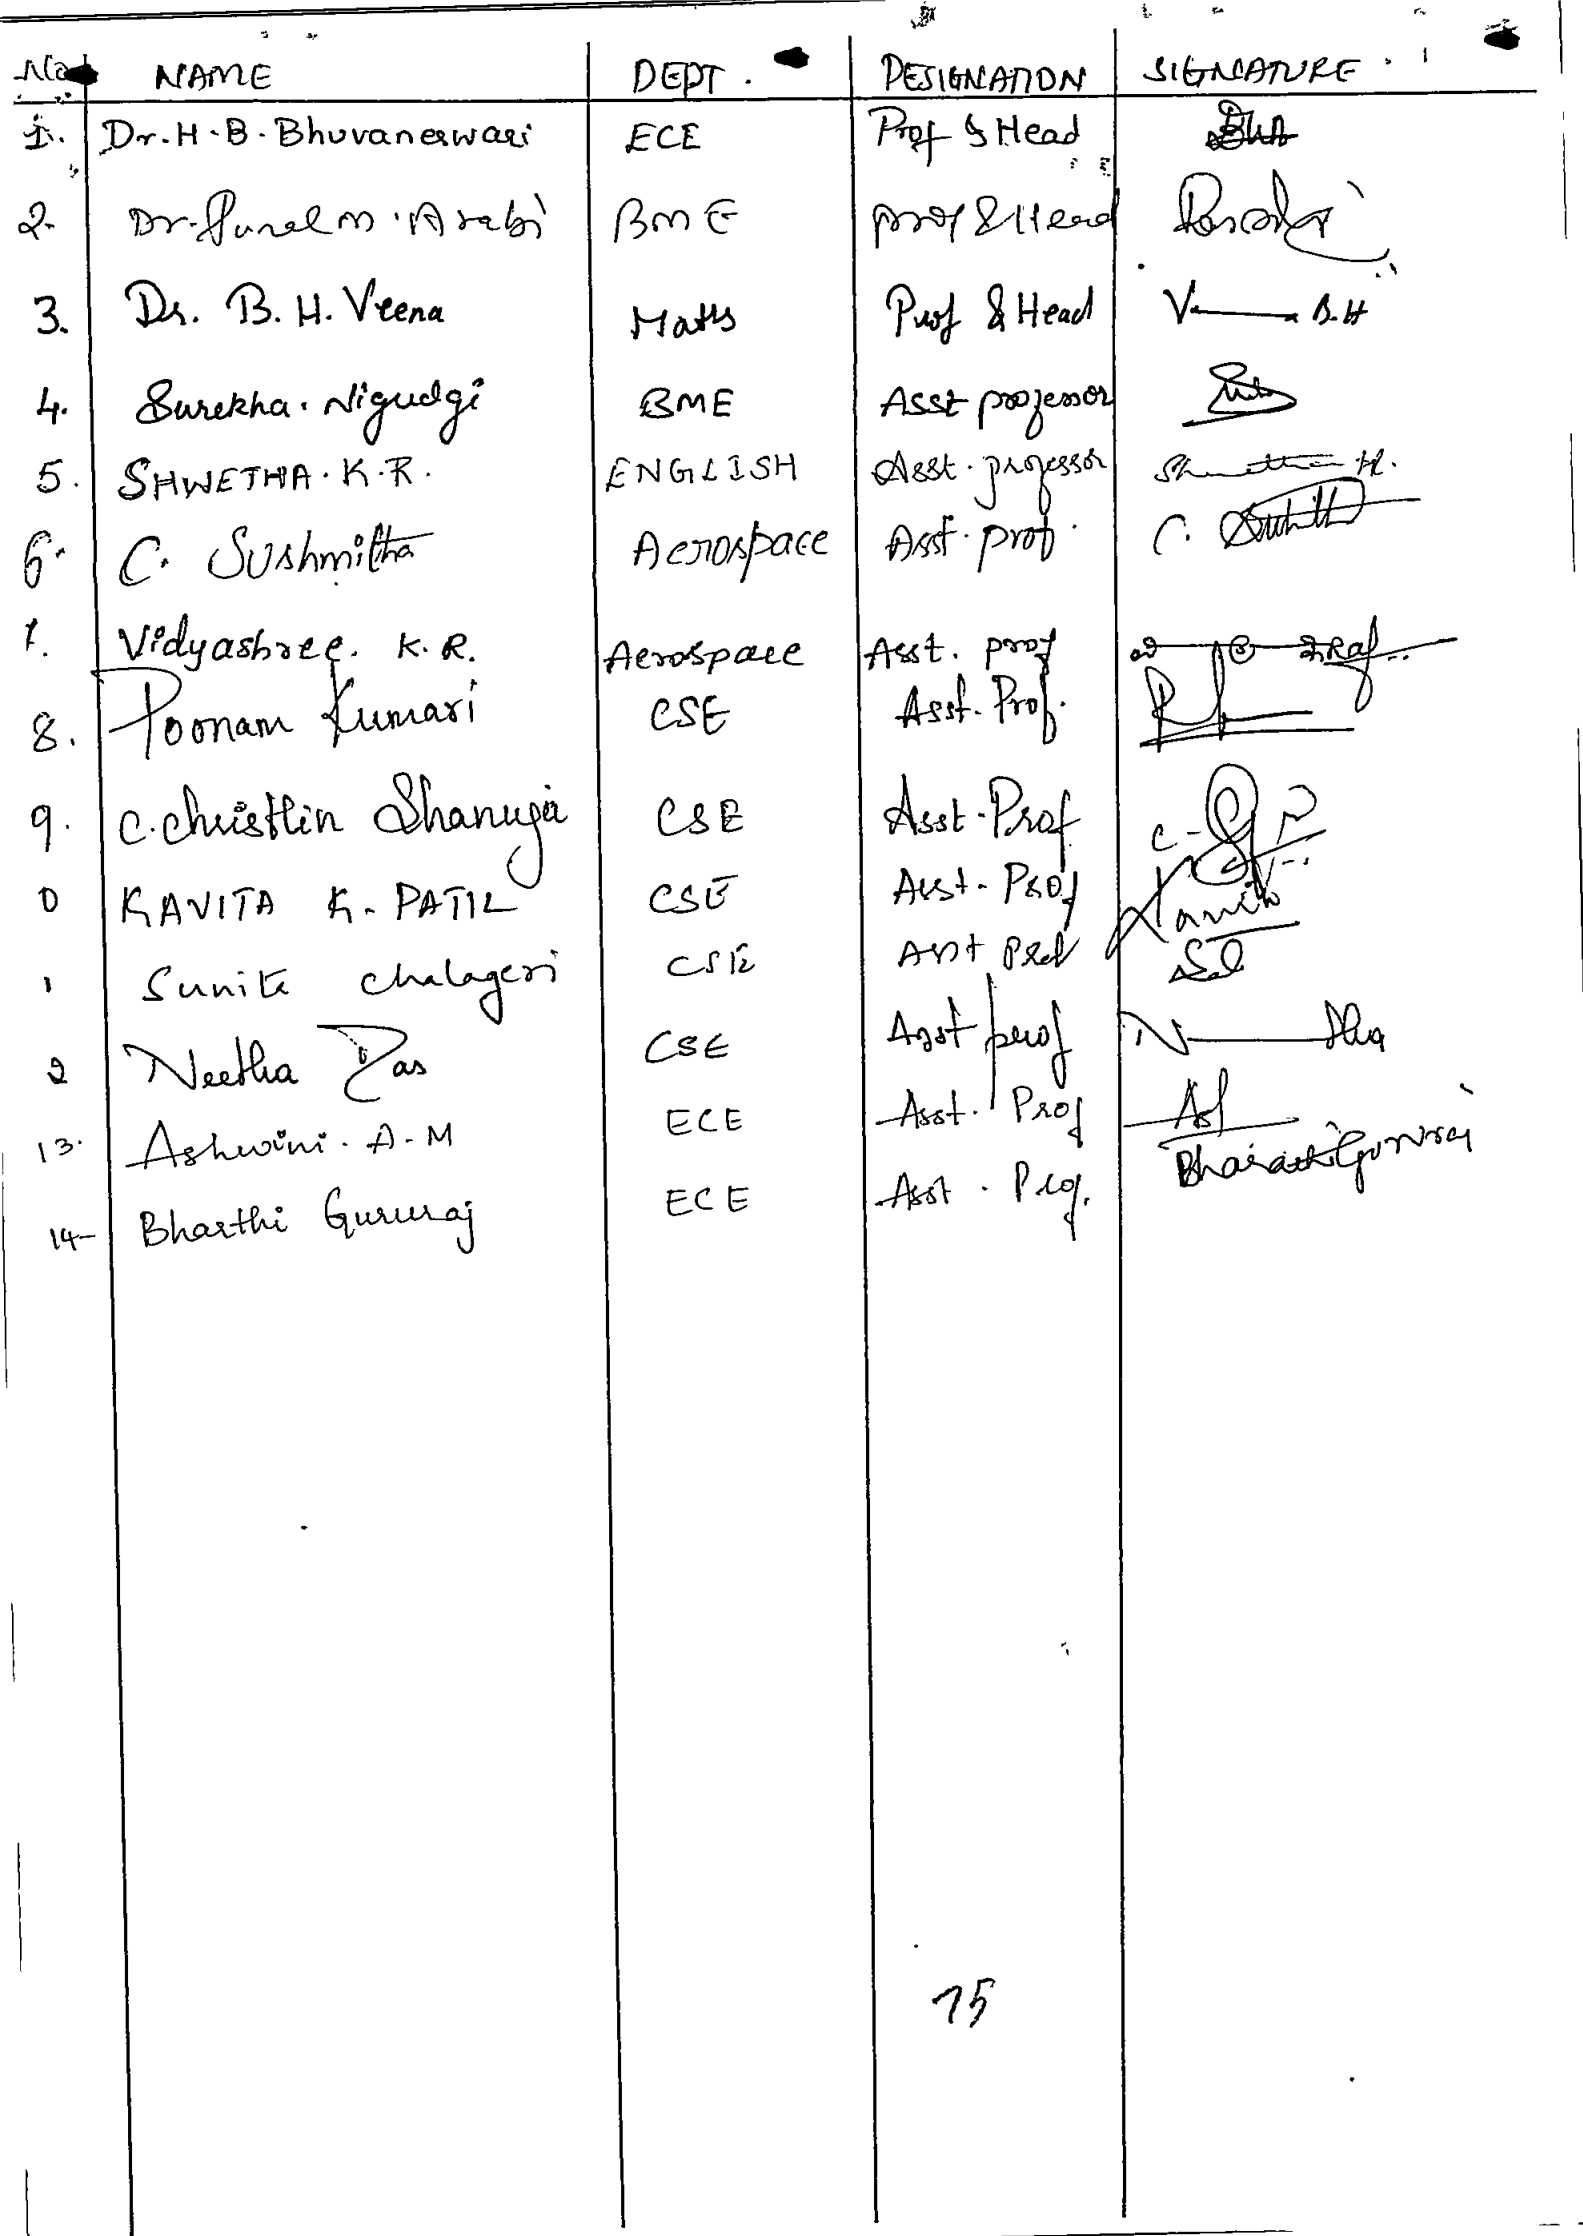 No NAME DEPT. DESIGNATION SIGNATURE.
1. Dr. H. B. Bhuvaneswari ECE Prof & Head
2. Dr. Punal M. Arabi BME prof & Head
3. Dr. B. H. Veena Maths Prof & Head V B.H
4. Surekha. Nigudgi BME Asst professor
5. SHWETHA. K. R. ENGLISH Asst. professor
6. C. Sushmitha Aerospace Asst. prof. C.
7. Vidyashree. K. R. Aerospace Asst. prof
8. Poonam Kumari CSE Asst. Prof.
9. C. Christlin Shanuja CSE Asst. Prof
0 KAVITA K. PATIL CSE Asst. Prof Kavita
1 Sunita Chalageri CSE Asst Prof
2 Neetha Das CSE Asst prof N tha
13. Ashwini. A. M ECE Asst. Prof
14- Bharthi Gururaj ECE Asst. Prof. Bharathi Gururaj
15